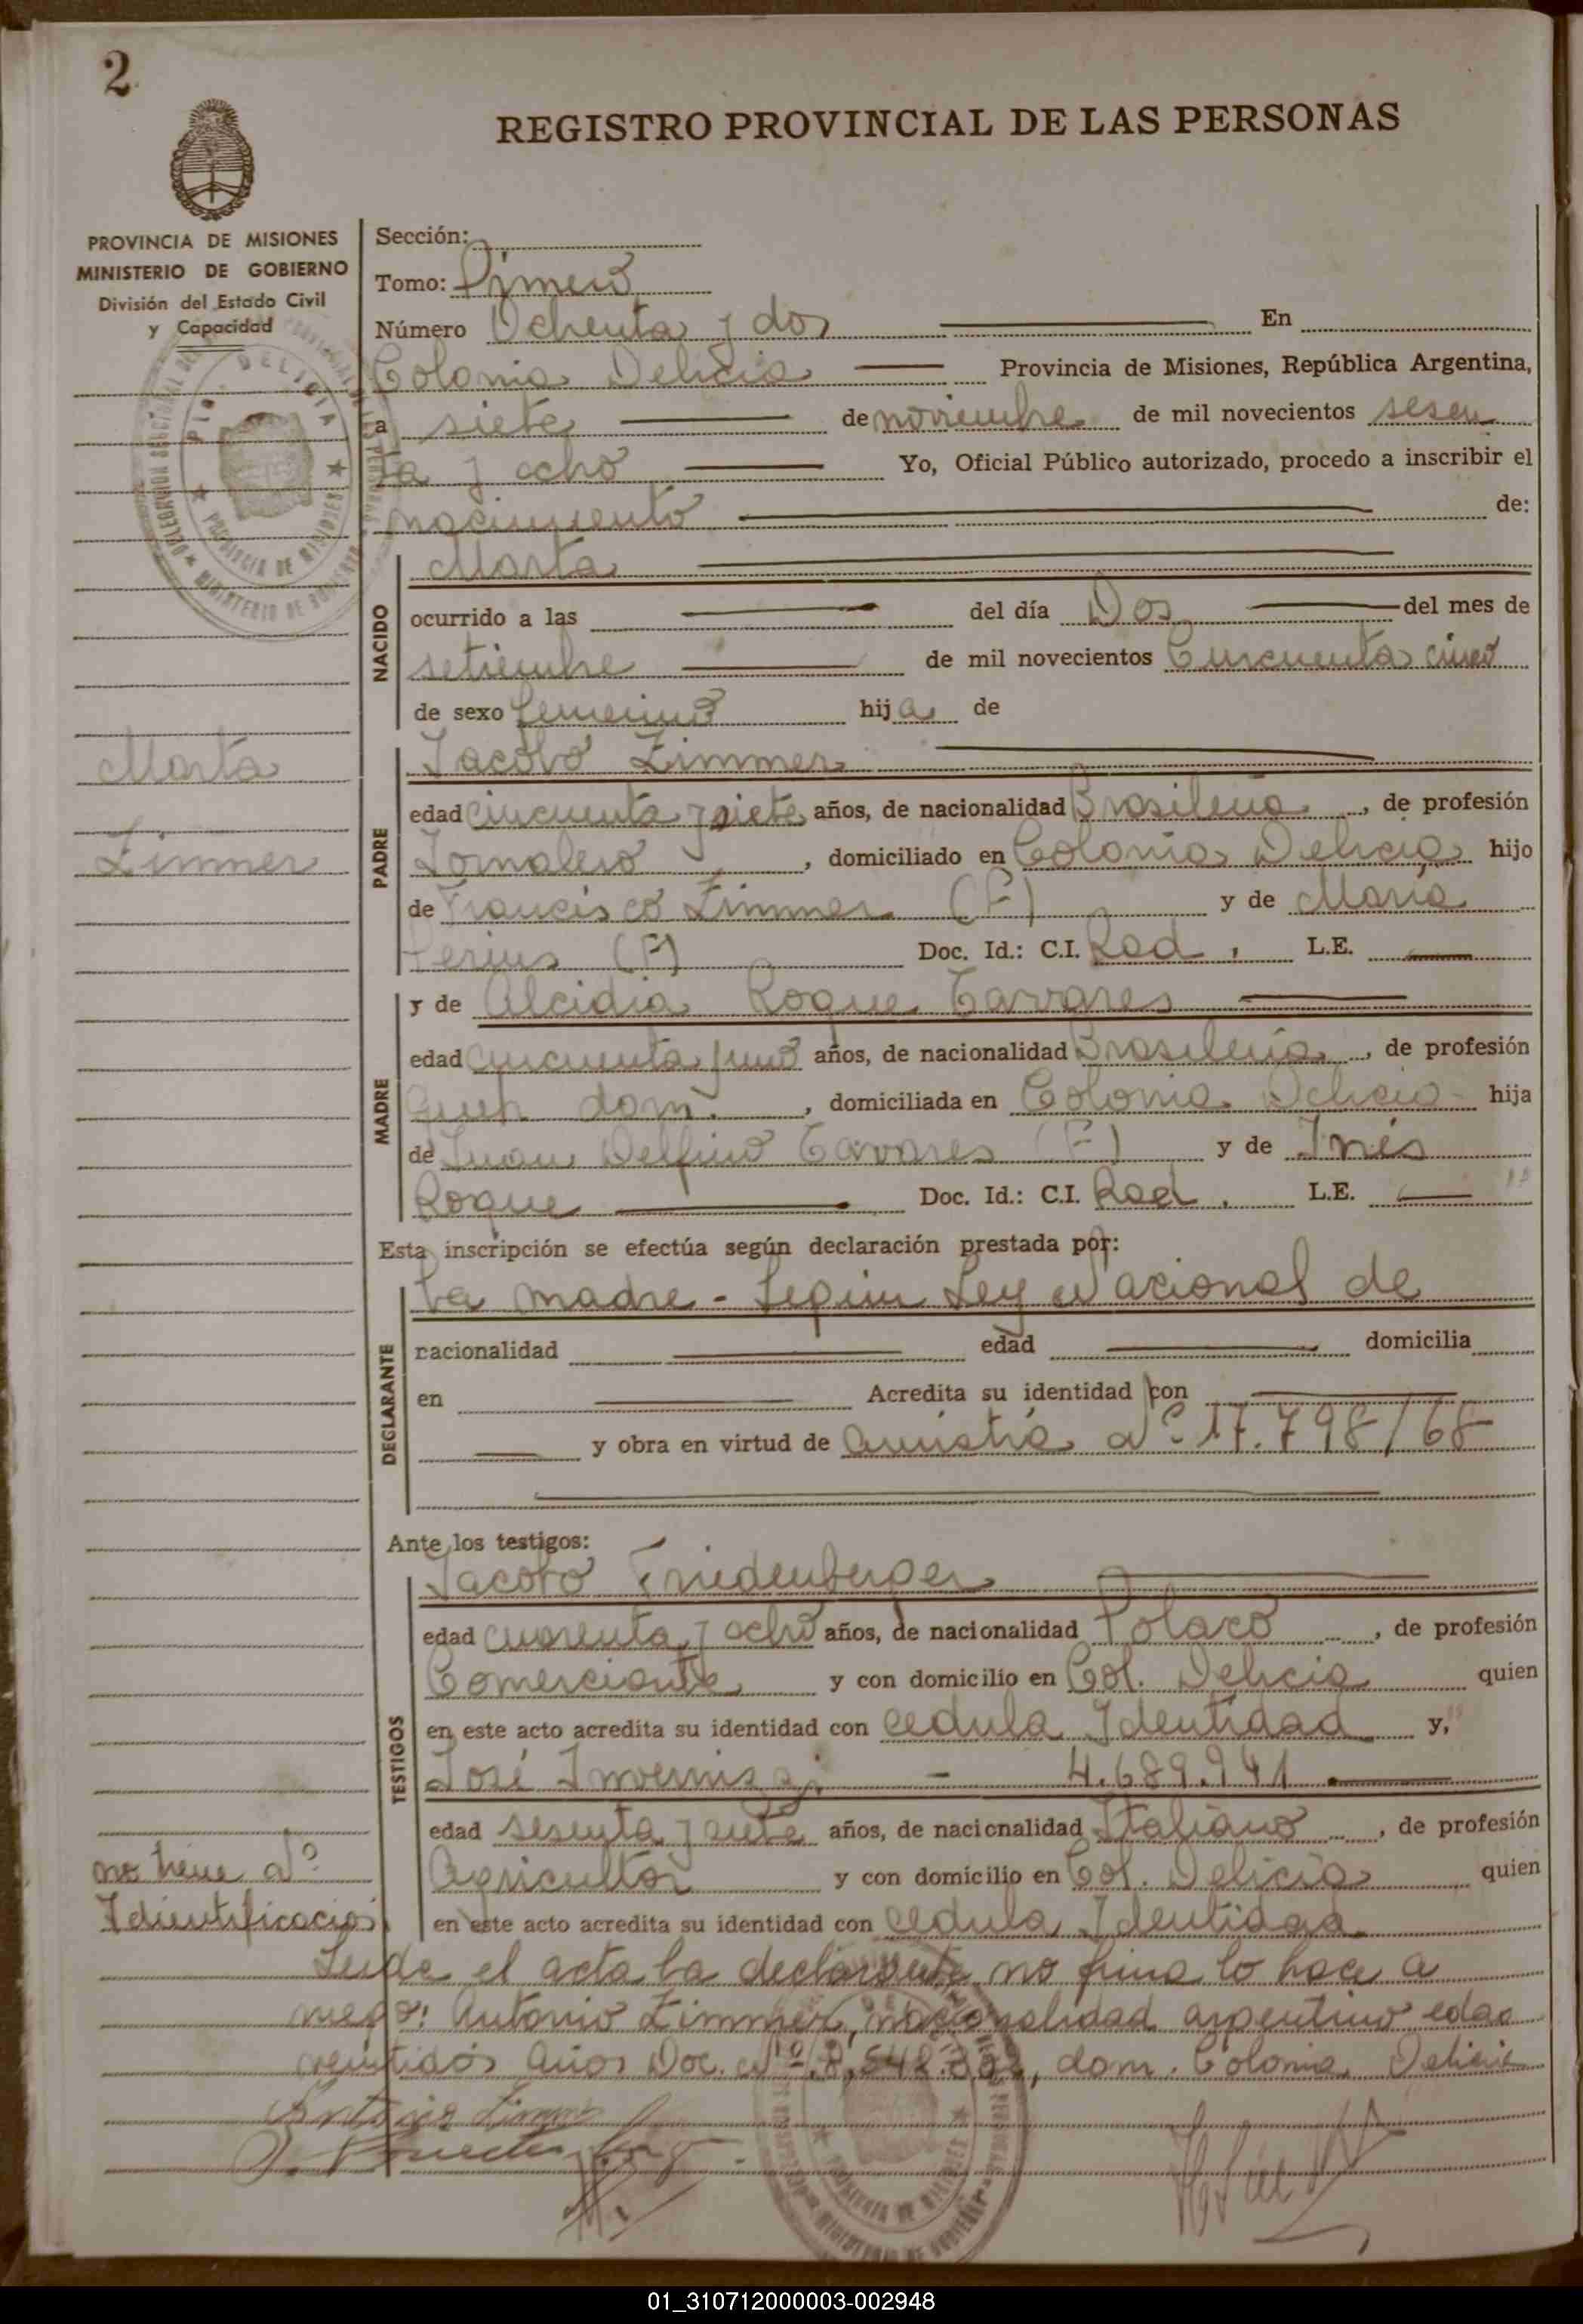 2
REGISTRO PROVINCIAL DE LAS PERSONAS
PROVINCIA DE MISIONES
MINISTERIO DE GOBIERNO
División del Estado Civil
y Capacidad
Marta
Zimmer
no tiene Nº
Identificación
Sección:
Tomo: Primero
Número Ochenta y dos En
Colonia Delicia Provincia de Misiones, República Argentina,
a siete de noviembre de mil novecientos sesen
ta y ocho Yo, Oficial Público autorizado, procedo a inscribir el
nacimiento de:
NACIDO
Marta
ocurrido a las del día Dos del mes de
setiembre de mil novecientos Cincuenta cinco
de sexo femenino hija de
PADRE
Jacobo Zimmer
edad cincuenta y siete años, de nacionalidad Brasileña, de profesión
Jornalero, domiciliado en Colonia Delicia hijo
de Francisco Zimmer (F) y de María
(F) Doc. Id.: C.I. Rad. L.E.
MADRE
y de Alcidia Roque Tavares
edad cincuenta y uno años, de nacionalidad Brasileña, de profesión
dom., domiciliada en Colonia Delicia hija
de Juan Delfino Tavares (F) y de Inés
Roque Doc. Id.: C.I. Rad. L.E.
Esta inscripción se efectúa según declaración prestada por:
DECLARANTE
La madre - Según Ley Nacional de
nacionalidad edad domicilia
en Acredita su identidad con
y obra en virtud de Amistía Nº 17.798/68
Ante los testigos:
TESTIGOS
Jacobo Friedenberger
edad cuarenta y ocho años, de nacionalidad Polaco, de profesión
Comerciante y con domicilio en Col. Delicia quien
en este acto acredita su identidad con cedula Identidad y,
José - 4.689.941
edad sesenta y siete años, de nacionalidad Italiano, de profesión
Agricultor y con domicilio en Col. Delicia quien
en este acto acredita su identidad con cedula Identidad
Leida el acta la declarante no firma lo hace a
ruego: Antonio Zimmer, nacionalidad argentino edad
veintidós años Doc. Nº dom. Colonia Delicia
Antonio
01_310712000003-002948